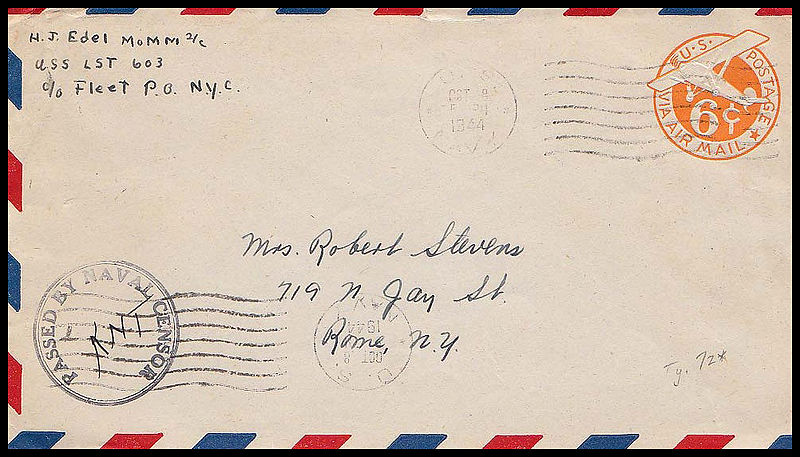 H.J. Edel MoMM 2/c
USS LST 603
c/o Fleet P.O. N.Y.C.
U.S. POSTAGE
6¢
VIA AIR MAIL
U.S.
OCT 8
1944
NAVY
Mrs. Robert Stevens
719 N. Jay St.
Rome, N.Y.
PASSED BY NAVAL CENSOR
U.S.
OCT 8
1944
NAVY
Ty. 72*